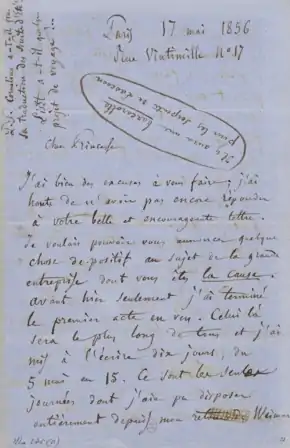 Paris 17 mai 1856
Rue Vintimille N° 17
P.S. Cornelius a-t-il fini
sa traduction des Nuits d'
Liszt a-t-il quelque
projet de voyage...
Il y aura une
pour les
Chère Princesse
J'ai bien des excuses à vous faire; j'ai
honte de n'avoir pas encore répondu
à votre belle et encourageante lettre.
Je voulais pouvoir vous annoncer quelque
chose de positif au sujet de la grande
entreprise dont vous êtes la cause.
avant hier seulement j'ai terminé
le premier acte en vers. Celui là
sera le plus long de tous et j'ai
mis à l'écrire dix jours, du
5 mai au 15. Ce sont les seules
journées dont j'aie pu disposer
entièrement depuis mon Weimar